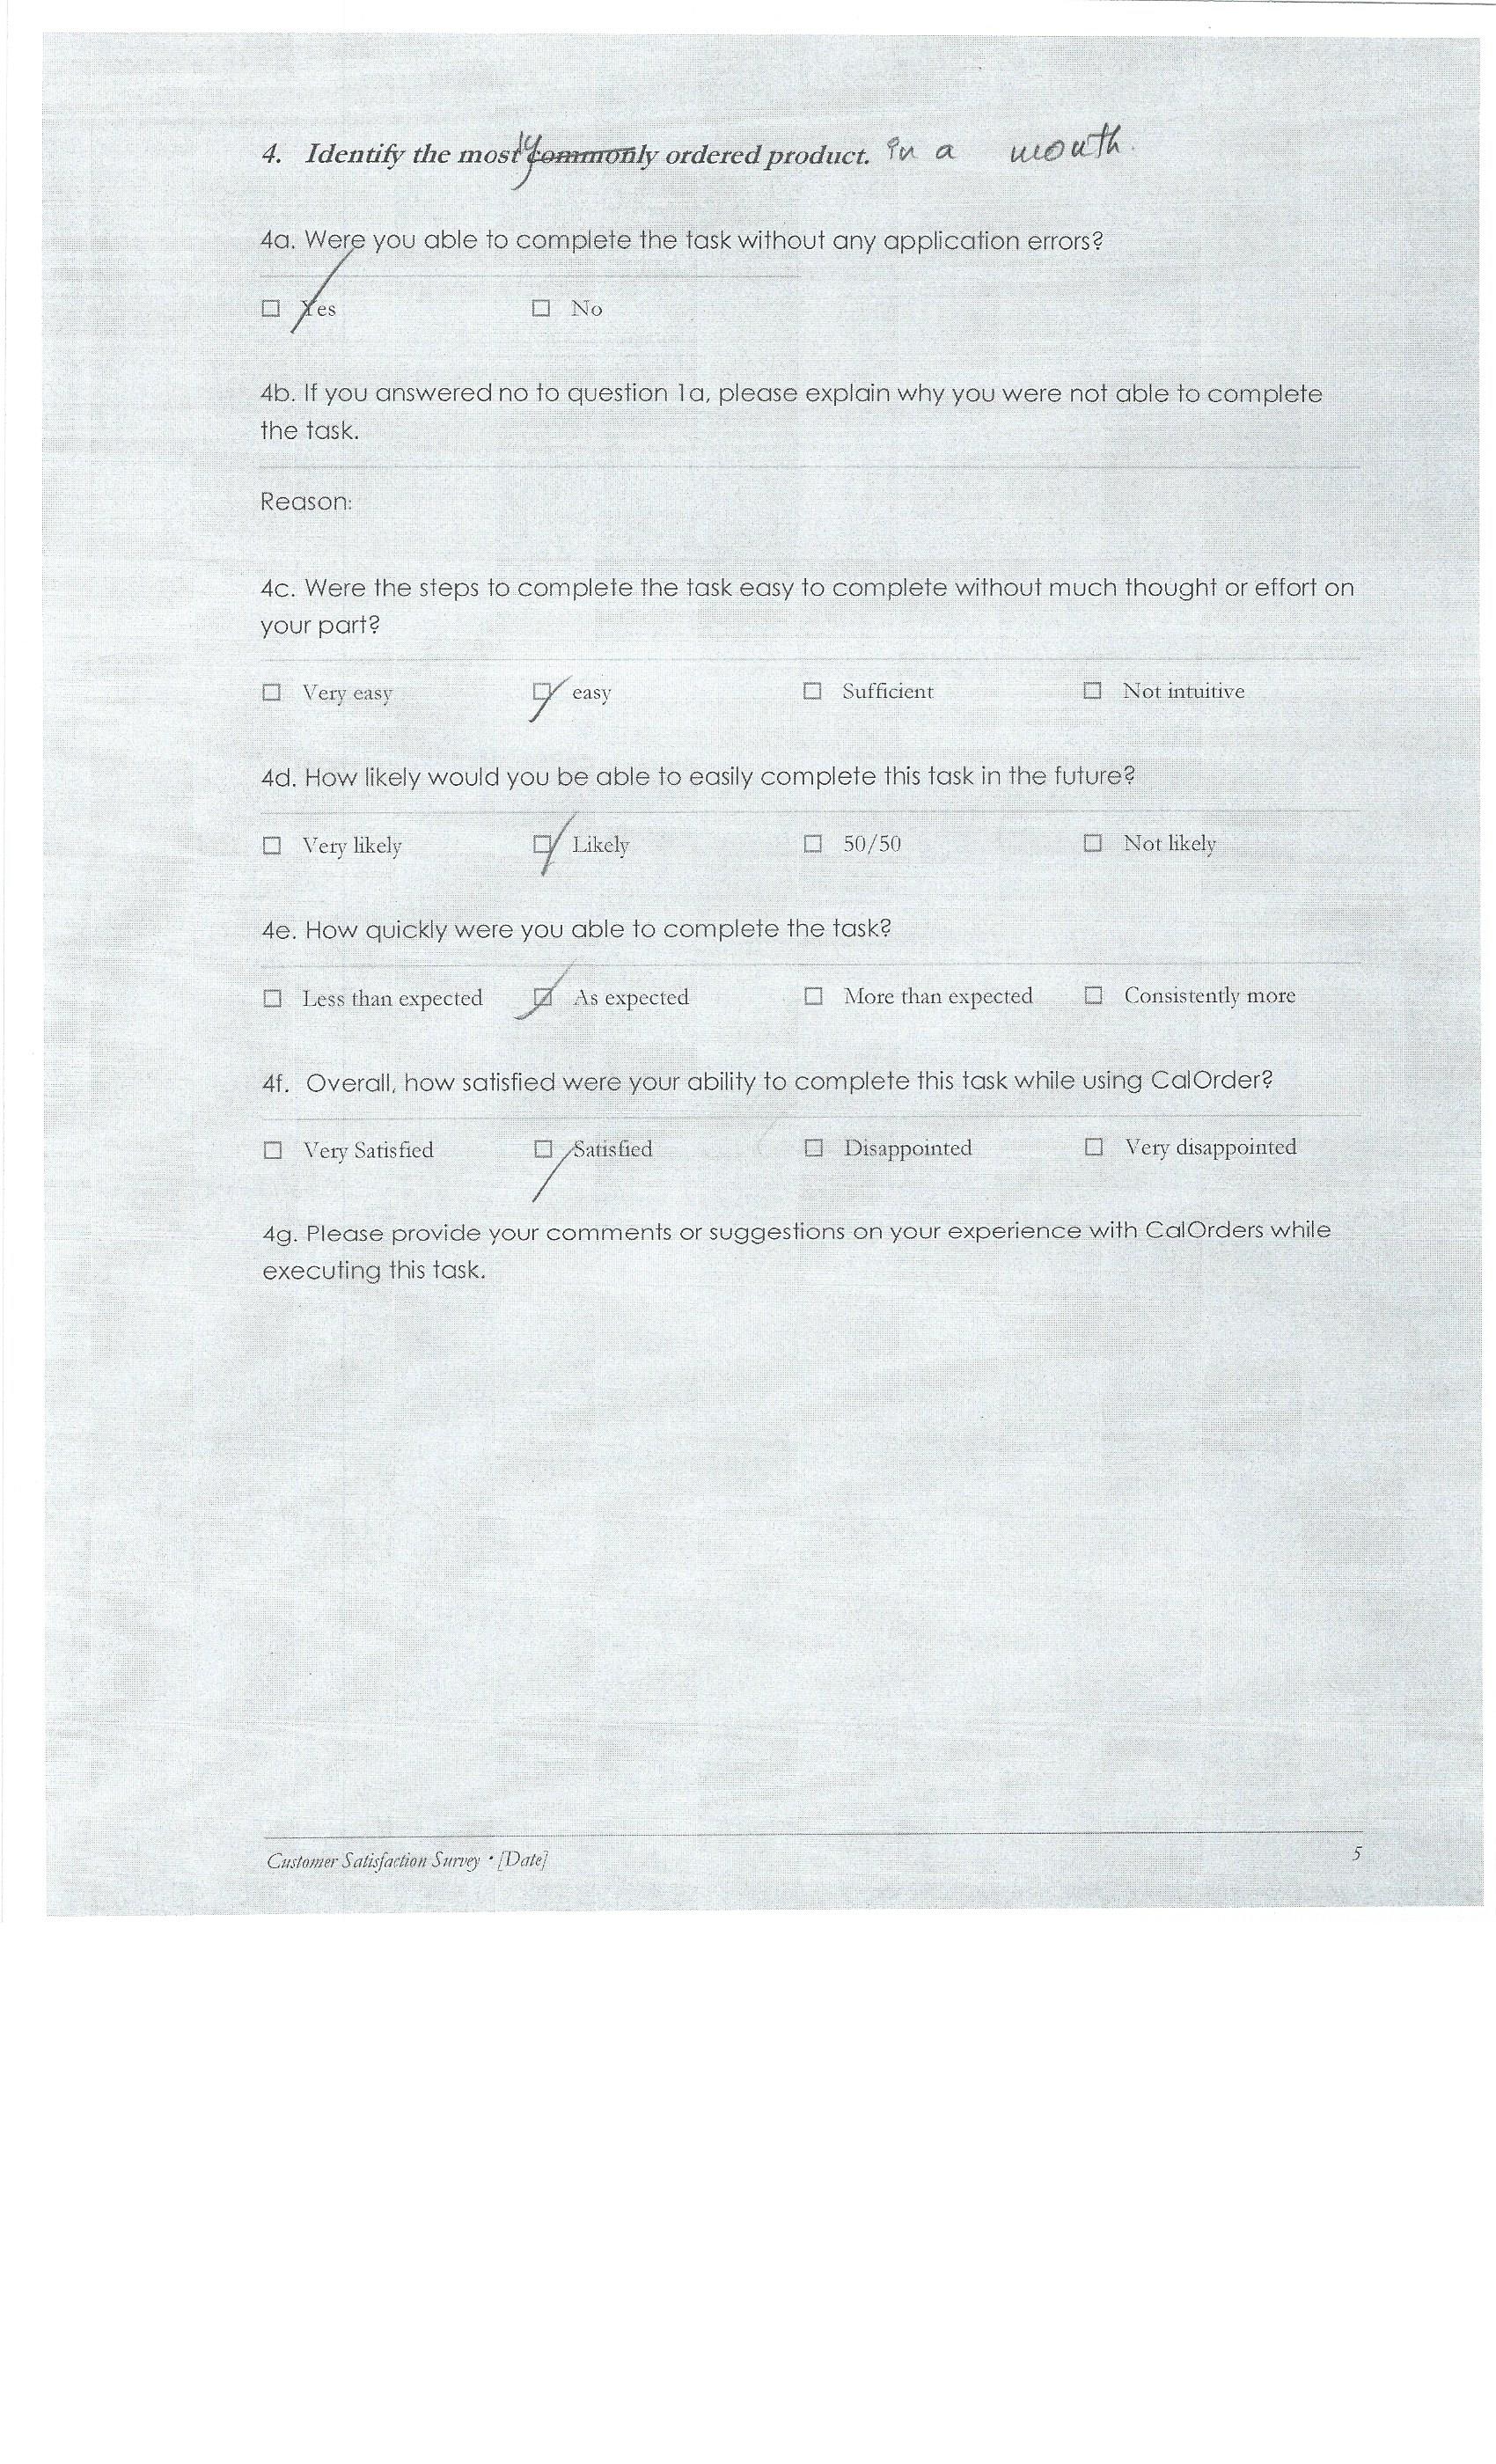 4. Identify the mostly commonly ordered product. in a month.
4a. Were you able to complete the task without any application errors?
☐ Yes ☐ No
4b. If you answered no to question 1a, please explain why you were not able to complete
the task.
Reason:
4c. Were the steps to complete the task easy to complete without much thought or effort on
your part?
☐ Very easy ☑ easy ☐ Sufficient ☐ Not intuitive
4d. How likely would you be able to easily complete this task in the future?
☐ Very likely ☑ Likely ☐ 50/50 ☐ Not likely
4e. How quickly were you able to complete the task?
☐ Less than expected ☑ As expected ☐ More than expected ☐ Consistently more
4f. Overall, how satisfied were your ability to complete this task while using CalOrder?
☐ Very Satisfied ☐ Satisfied ☐ Disappointed ☐ Very disappointed
4g. Please provide your comments or suggestions on your experience with CalOrders while
executing this task.
Customer Satisfaction Survey • [Date] 5